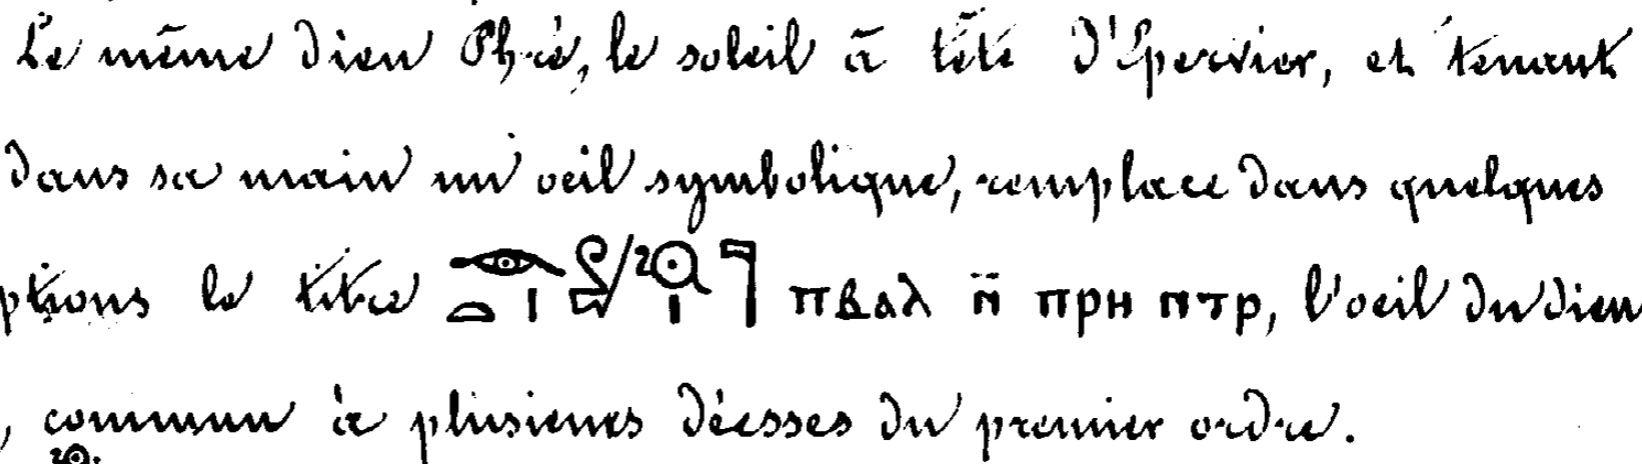 Le même dieu Phré, le soleil à tête d'Épervier, et tenant
dans sa main un oeil symbolique, remplace dans quelques
ptions le titre ⲡⲃⲁⲗ ⲛ̈ ⲡⲣⲏ ⲡⲧⲣ, l'oeil du dieu
, commun à plusieurs déesses du premier ordre.